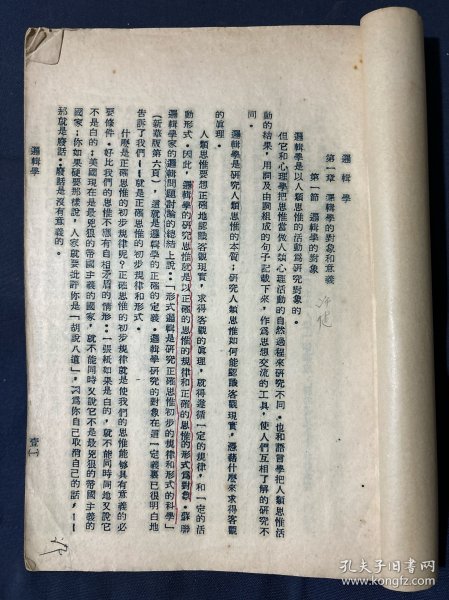 邏輯學
第一章 邏輯學的對象和意義
第一節 邏輯學的對象
邏輯學是以人類思惟的活動爲研究對象的。
但它和心理學把思惟當做人類心理活動的自然過程來研究不同。也和語言學把人類思惟活
動的結果，用詞及由詞組成的句子記載下來，作爲思想交流的工具，使人們互相了解的研究不
同。
邏輯學是研究人類思惟的本質；研究人類思惟如何能認識客觀現實，憑藉什麼來求得客觀
的眞理。
人類思惟要想正確地認識客觀現實，求得客觀的眞理，就得遵循一定的規律，和一定的活
動形式。因此，邏輯學的研究思惟就是以正確的思惟的規律和正確的思惟的形式爲對象。蘇聯
邏輯學家的邏輯問題討論的總結上說：「形式邏輯是研究正確思惟初步的規律和形式的科學」
（新華版第六頁），這就是邏輯學的正確的定義。邏輯學研究的對象在這一定義裏已很明白地
告訴了我們：「就是正確思惟的初步規律和形式。
什麼是正確思惟的初步規律呢？正確思惟的初步規律就是使我們的思惟能够具有意義的必
要條件。好比我們的思惟不應有自相矛盾的情形：一張紙如果是白的，就不能同時間地又說它
不是白的；美國現在是最兇狠的帝國主義的國家，就不能同時又說它不是最兇狠的帝國主義的
國家；你如果硬要那樣說，人家就要批評你是「胡說八道」，因爲你自己取消自己的話，——
那就是廢話。廢話是沒有意義的。
邏輯學
壹一
孔夫子旧书网
book.kongfz.com